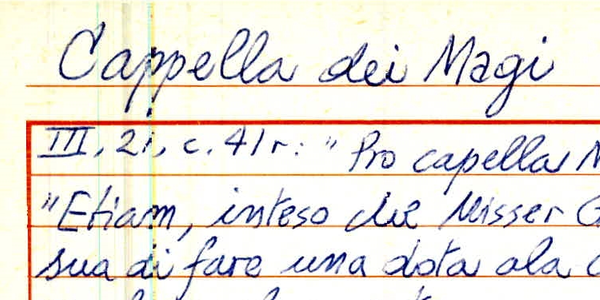 Cappella dei Magi
III, 21, c. 41r: "Pro capella M
"Etiam, inteso che Misser G
sua di fare una dota ala c